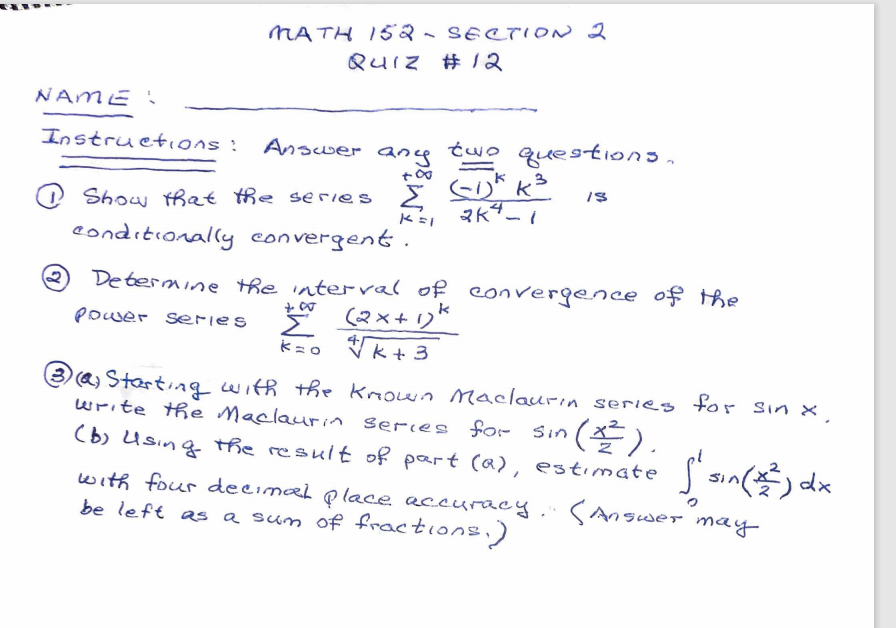 MATH 152 - SECTION 2
QUIZ #12
NAME : ____________________
Instructions : Answer any two questions.
① Show that the series \sum_{k=1}^{+\infty} \frac{(-1)^k k^3}{2k^4 - 1} is
conditionally convergent.
② Determine the interval of convergence of the
power series \sum_{k=0}^{+\infty} \frac{(2x+1)^k}{\sqrt[4]{k+3}}
③ (a) Starting with the known Maclaurin series for sin x,
write the Maclaurin series for sin(\frac{x^2}{2}).
(b) Using the result of part (a), estimate \int_0^1 sin(\frac{x^2}{2}) dx
with four decimal place accuracy. (Answer may
be left as a sum of fractions.)